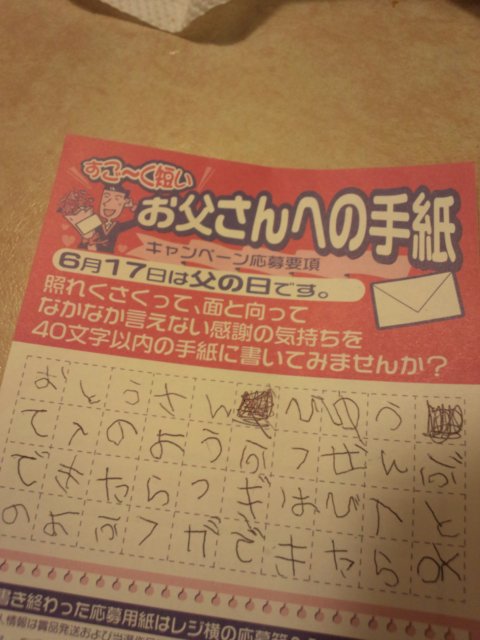 すご〜く短い
お父さんへの手紙
キャンペーン応募要項
6月17日は父の日です。
照れくさくって、面と向って
なかなか言えない感謝の気持ちを
40文字以内の手紙に書いてみませんか?
おとうさんびゆう
てんのようぶつぜんぶ
できたらつぎはびんと
のようふくができたら
書き終わった応募用紙はレジ横の応募
人情報は賞品発送および当選